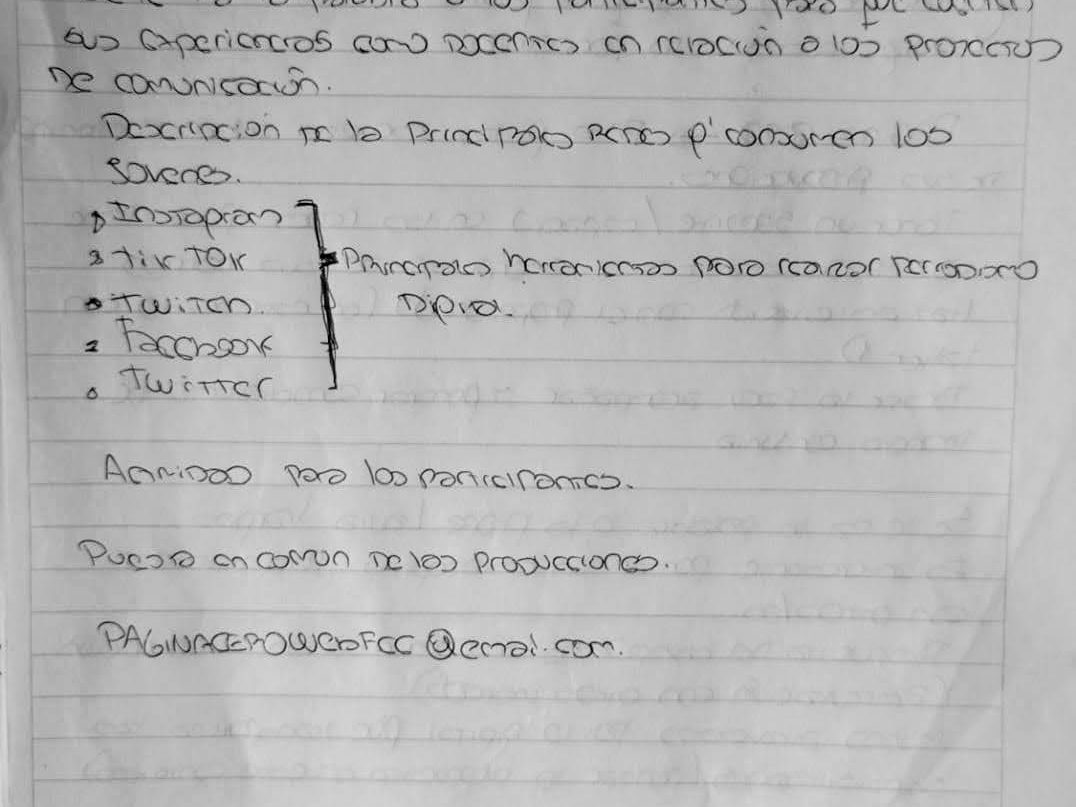 a los participantes para que cuenten
sus experiencias como docentes en relación a los proyectos
De comunicación.
Descripción de la principales redes q' consumen los
Jovenes.
Instagran
Tik Tok
Twitch.
Facebook
Twitter
Principales herramientas para realizar periodismo
Digital.
Actividad para los participantes.
Puesta en común de las producciones.
PAGINACEROWEBFCC@gmail.com.